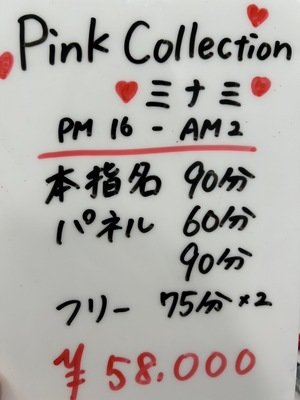 Pink Collection
ミナミ
PM 16 - AM2
本指名 90分
パネル 60分
90分
フリー 75分×2
¥58.000